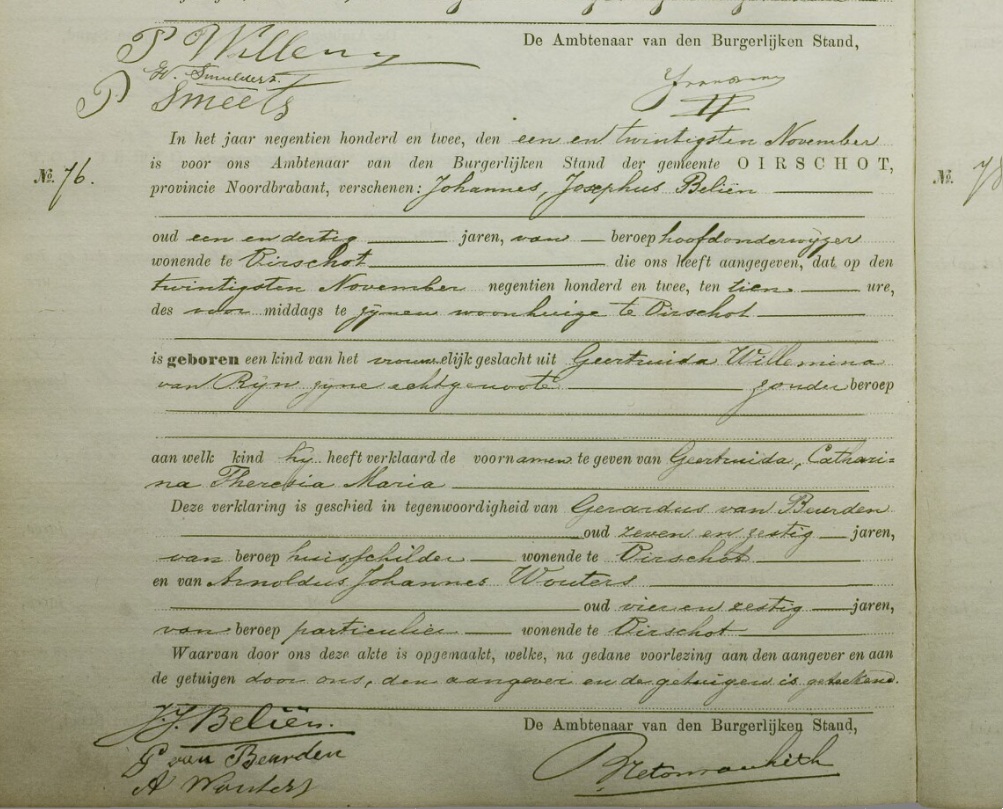 De Ambtenaar van den Burgerlijken Stand,
P Willems
W. Smulders.
P Smeets
In het jaar negentien honderd en twee, den een en twintigsten November
No. 76.
is voor ons Ambtenaar van den Burgerlijken Stand der gemeente OIRSCHOT,
provincie Noordbrabant, verschenen: Johannes, Josephus Beliën
No.
oud een en dertig jaren, van beroep hoofdonderwijzer
wonende te Oirschot die ons heeft aangegeven, dat op den
twintigsten November negentien honderd en twee, ten tien ure,
des voor middags te zijnen woonhuize te Oirschot
is geboren een kind van het vrouwelijk geslacht uit Geertruida Willemina
van Rijn zijne echtgenoote zonder beroep
aan welk kind hij heeft verklaard de voornamen te geven van Geertruida, Cathari=
na Theresia Maria
Deze verklaring is geschied in tegenwoordigheid van Gerardus van Beurden
oud zeven en zestig jaren,
van beroep huisschilder wonende te Oirschot
en van Arnoldus Johannes Wouters
oud vier en zestig jaren,
van beroep particulier wonende te Oirschot
Waarvan door ons deze akte is opgemaakt, welke, na gedane voorlezing aan den aangever en aan
de getuigen door ons, den aangever en de getuigen is geteekend.
J. J. Beliën.
De Ambtenaar van den Burgerlijken Stand,
G van Beurden
A Wouters